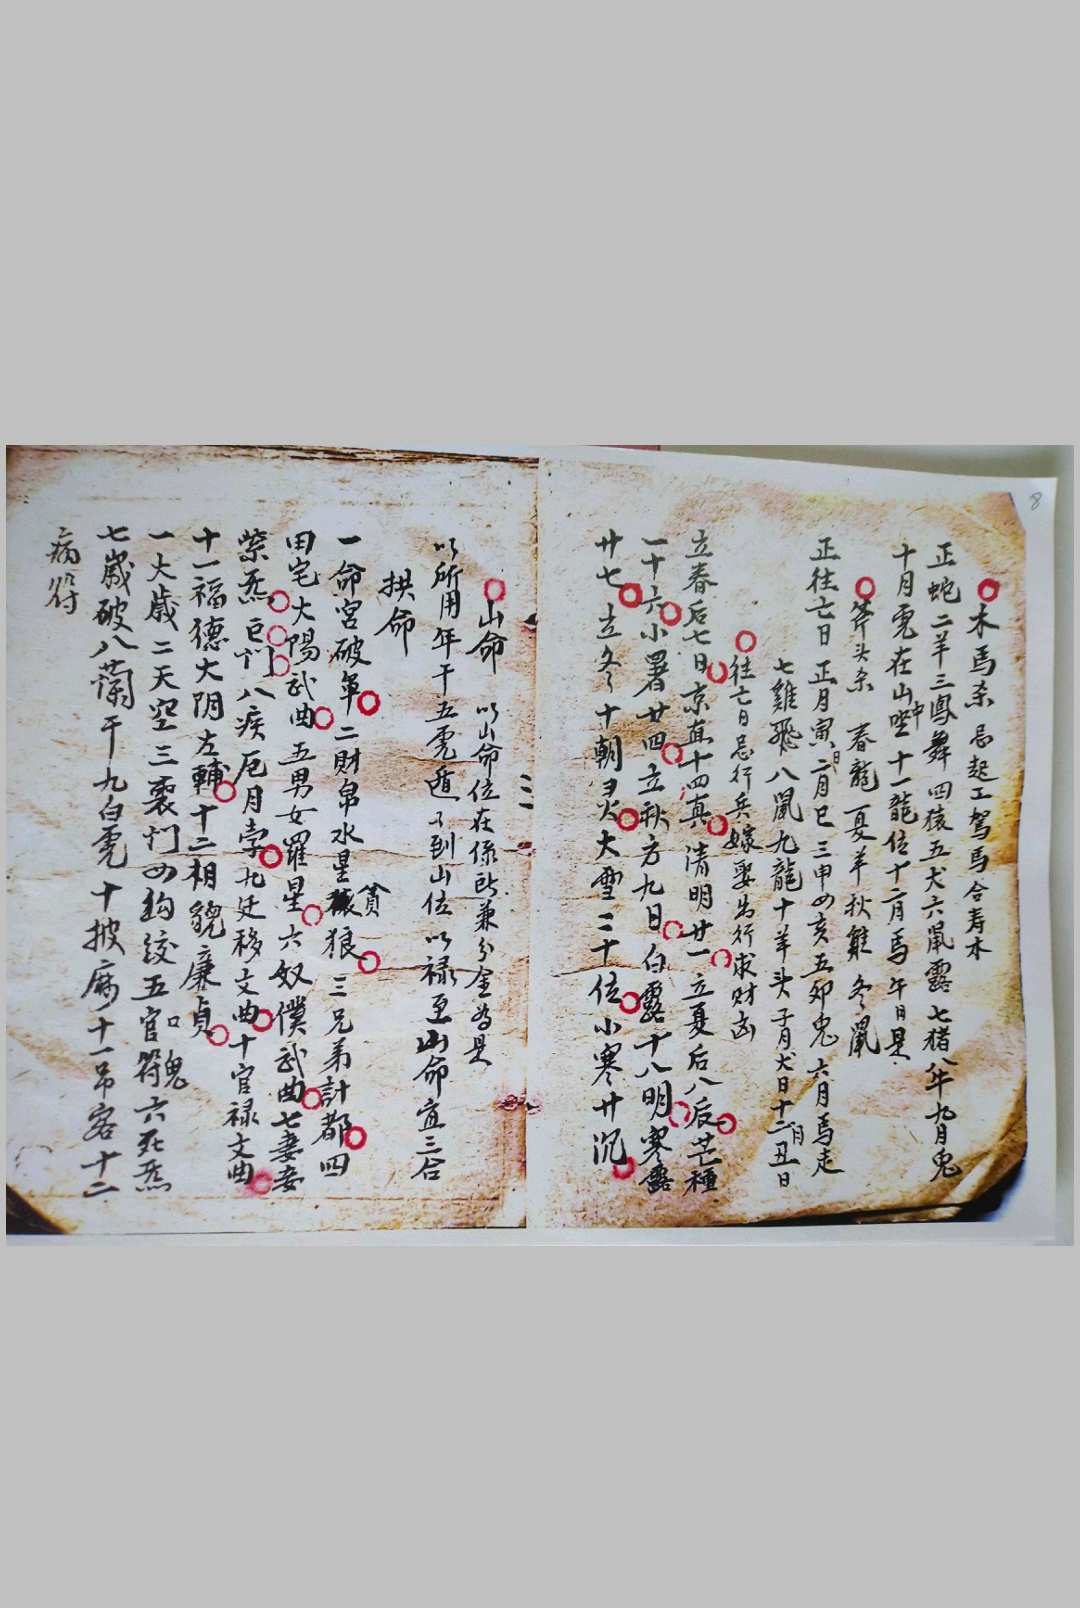 8
木馬杀 忌起工駕馬合寿木
正蛇二羊三鳳舞四猿五犬六鼠露七猪八牛九月兎
十月虎在山中坐十一龍位十二月馬午日是
斧头杀 春龍夏羊秋雞冬鼠
正往亡日 正月寅日二月巳三申四亥五卯兎六月馬走
七雞飛八鼠九龍十羊头子月犬日十二月丑日
往亡日忌行兵嫁娶出行求财凶
立春后七日京直十四真清明廿一立夏后八辰芒種
一十六小署廿四立秋方九日白露十八明寒露
廿七立冬十朝大雪二十位小寒廿沉
三
山命 以山命位在係兼分金為是
以所用年干五虎遁了到山位以禄至山命宜三合
拱命
一命宮破軍二財帛水星貪狼三兄弟計都四
田宅大陽武曲五男女羅星六奴僕武曲七妻妾
紫炁巨門八疾厄月孛九迁移文曲十官禄文曲
十一福德大阴左輔十二相貌廉貞
一大歳二天空三喪门四鈎絞五官符六死炁
口鬼
七歲破八蘭干九白虎十披麻十一吊客十二
病符